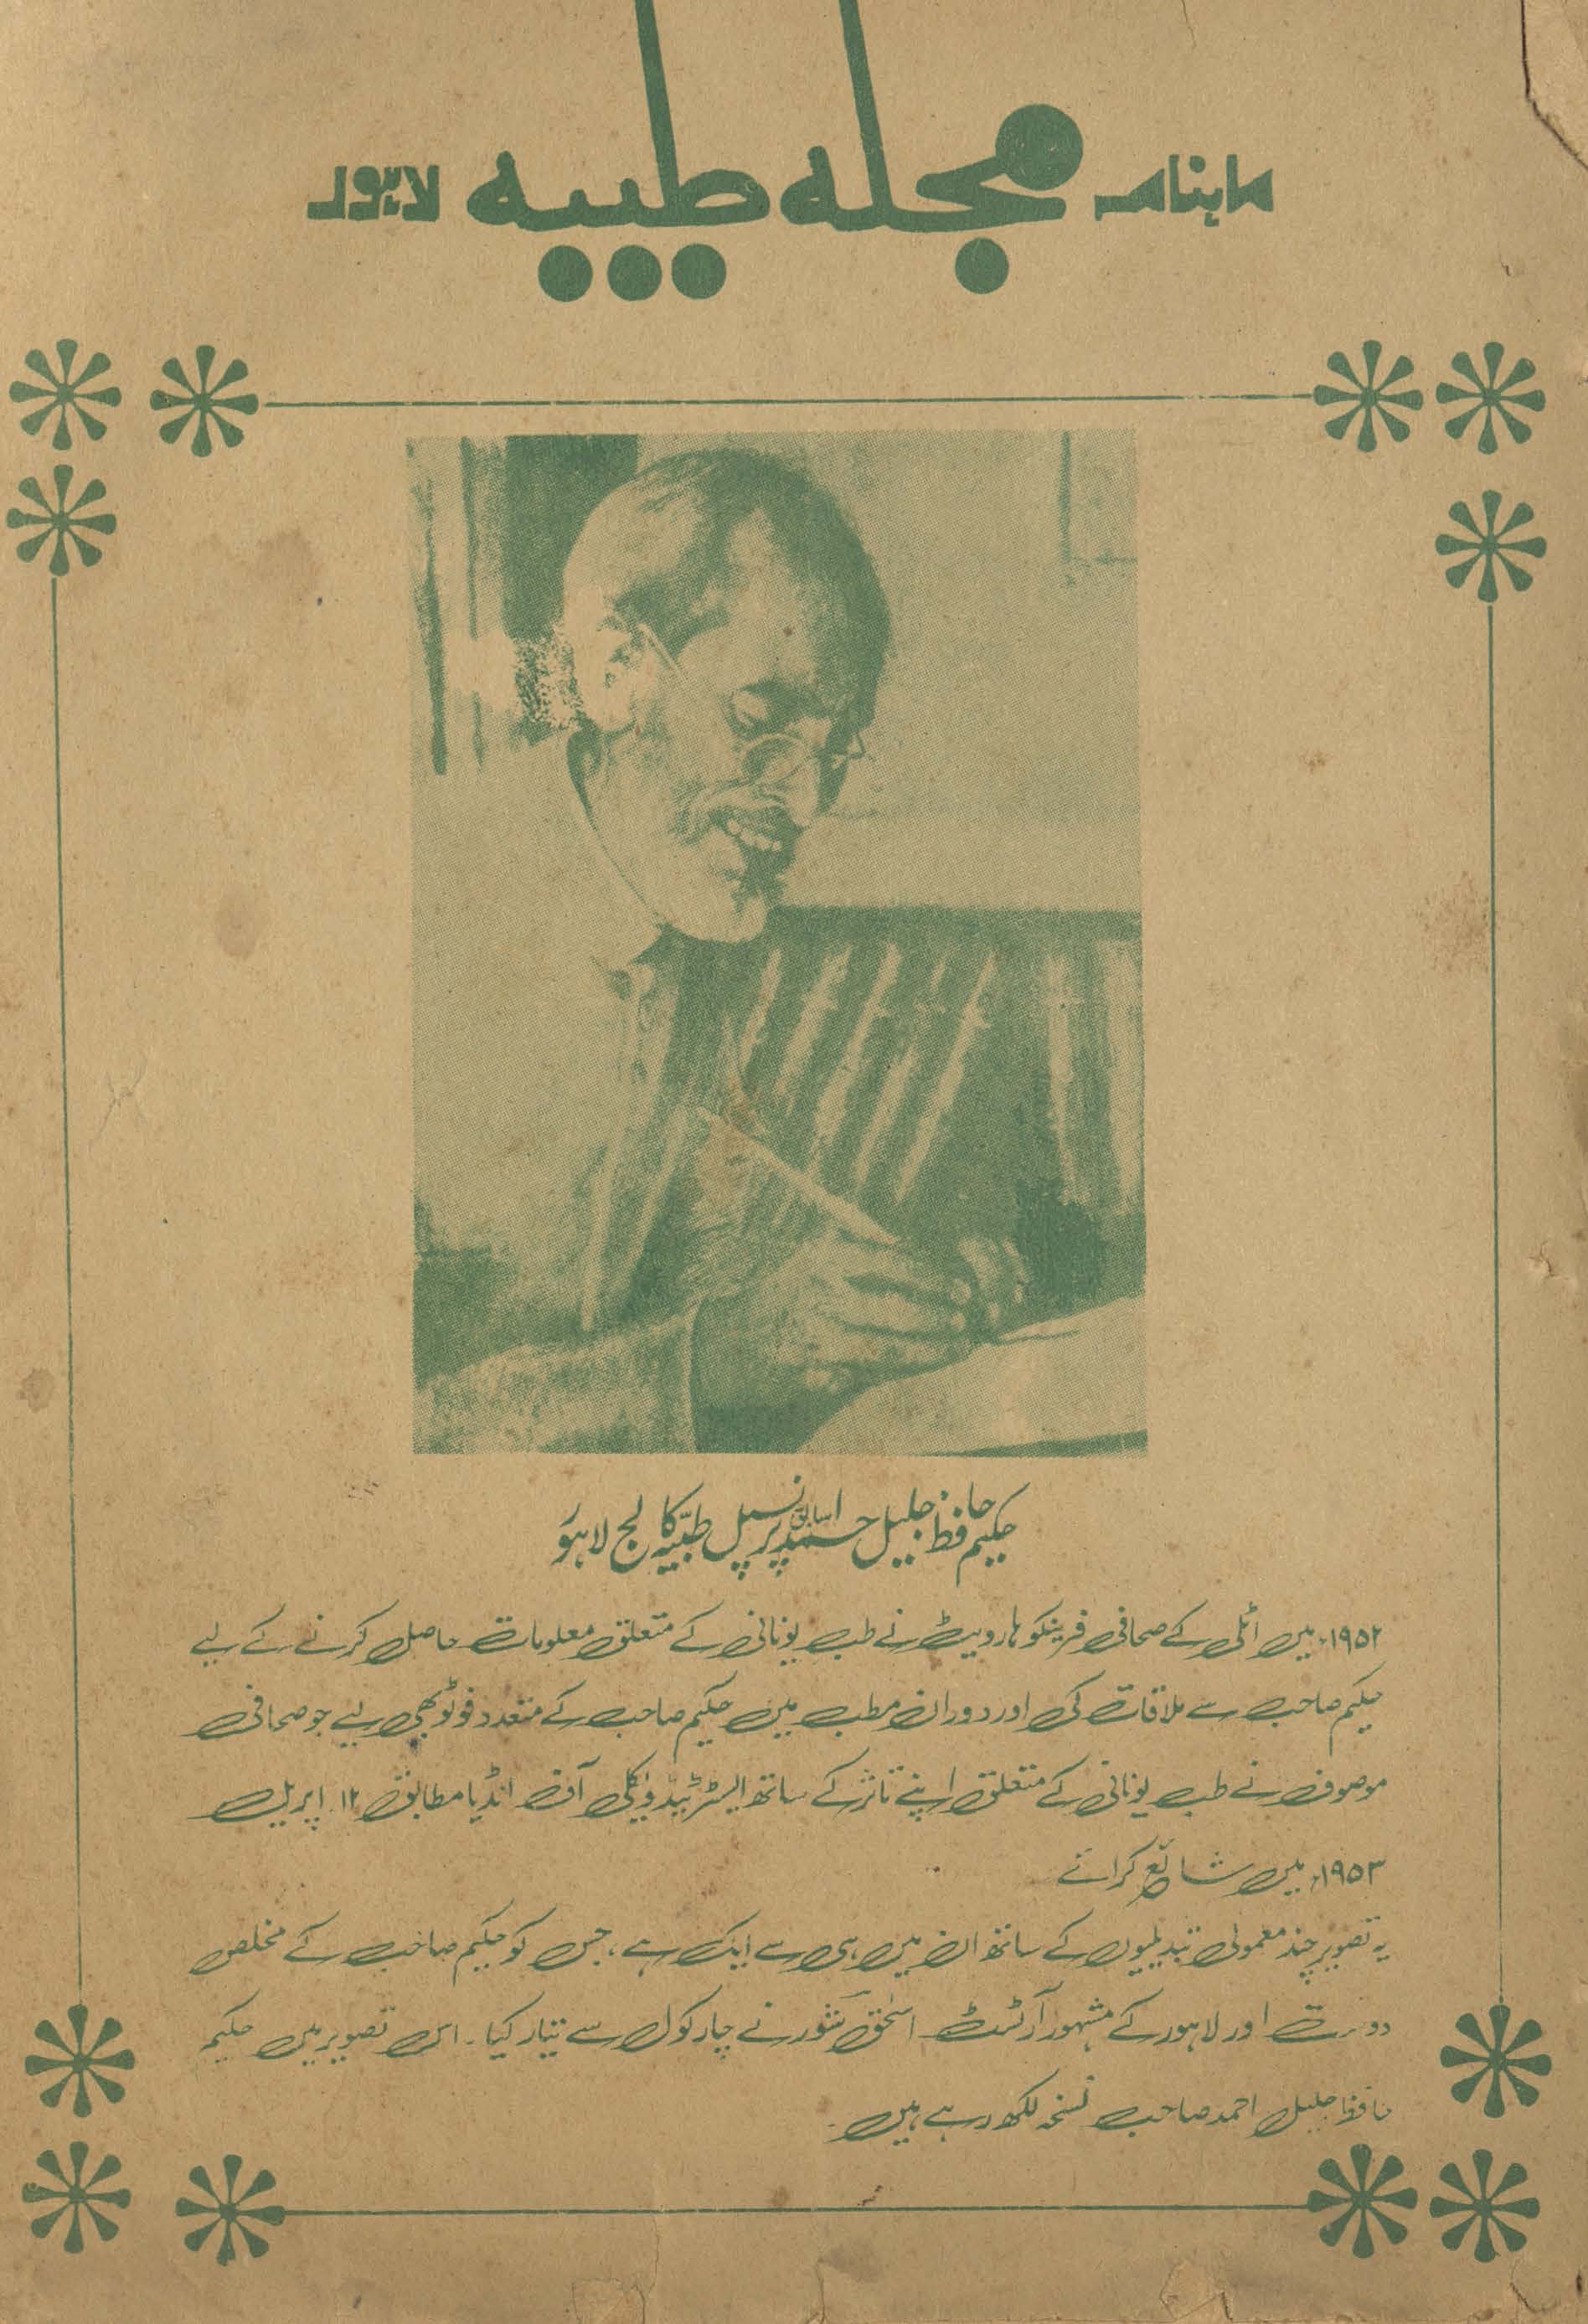 ماہنامہ مجلہ طبیہ لاہور
حکیم حافظ جلیل احمد سابق پرنسپل طبیہ کالج لاہور
۱۹۵۲ء میں اٹلی کے صحافی فرینکو ہارویٹ نے طب یونانی کے متعلق معلومات حاصل کرنے کے لیے
حکیم صاحب سے ملاقات کی اور دوران مطب میں حکیم صاحب کے متعدد فوٹو بھی لیے جو صحافی
موصوف نے طب یونانی کے متعلق اپنے تاثر کے ساتھ السٹریٹیڈ ویکلی آف انڈیا مطابق ۱۲ اپریل
۱۹۵۳ء میں شائع کرائے
یہ تصویر چند معمولی تبدیلیوں کے ساتھ ان میں ہی سے ایک ہے، جس کو حکیم صاحب کے مخلص
دوست اور لاہور کے مشہور آرٹسٹ اسحٰق نے چارکول سے تیار کیا۔ اس تصویر میں حکیم
حافظ جلیل احمد صاحب نسخہ لکھ رہے ہیں۔